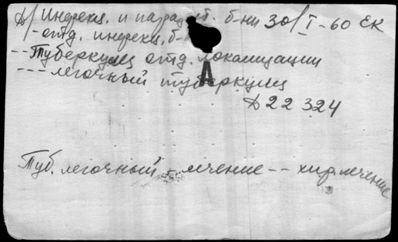 Д/ Индекц. и паразит. б-ни 30/I-60 ЕК
- отд. индекц. б-
-- Туберкулез отд. локализации
--- легочный туберкулез
Д 22 324
А
Туб. легочный - лечение -- хир. лечение